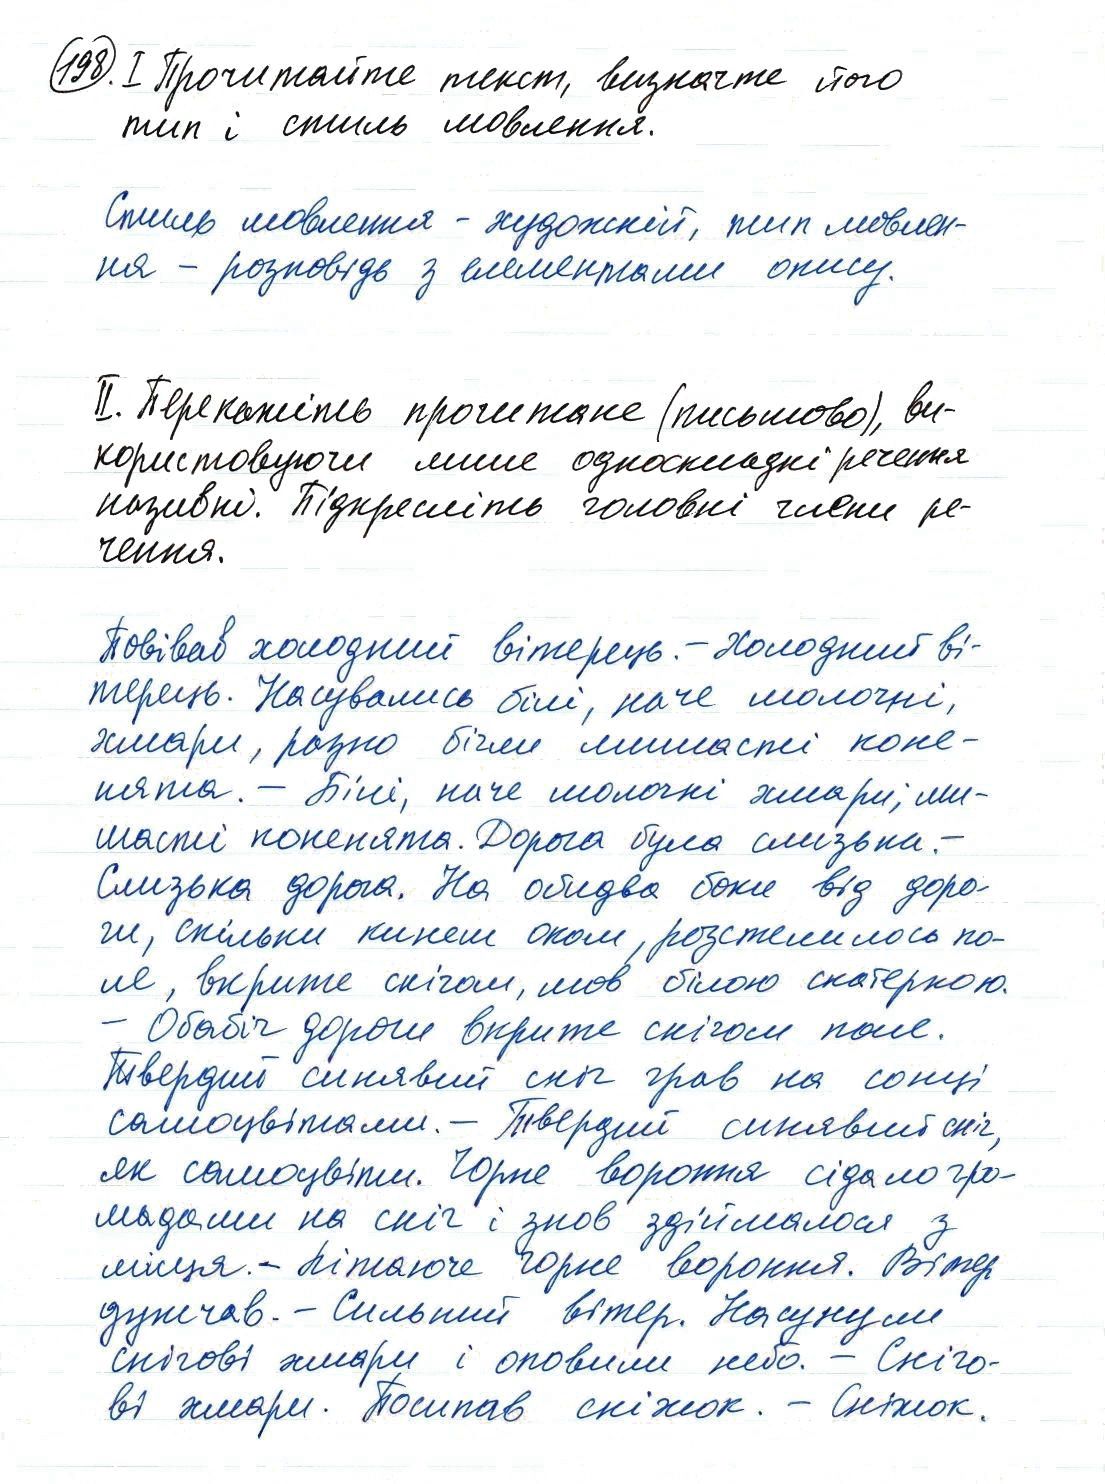 198. I Прочитайте текст, визначте його
тип і стиль мовлення.
Стиль мовлення – художній, тип мовлен-
ня – розповідь з елементами опису.
II. Перекажіть прочитане (письмово), ви-
користовуючи лише односкладні речення
називні. Підкресліть головні члени ре-
чення.
Повівав холодний вітерець. – Холодний ві-
терець. Насувались білі, наче молочні,
хмари, разно бігли мишасті коне-
нята. – Білі, наче молочні хмари; ми-
шасті коненята. Дорога була слизька. –
Слизька дорога. На обидва боки від доро-
ги, скільки кинеш оком, розстелилось по-
ле, вкрите снігом, мов білою скатеркою.
– Обабіч дороги вкрите снігом поле.
Твердий синявий сніг грав на сонці
самоцвітами. – Твердий синявий сніг,
як самоцвіти. Чорне вороння сідало гро-
мадами на сніг і знов здіймалося з
місця. – Літаюче чорне вороння. Вітер
дужчав. – Сильний вітер. Насунули
снігові хмари і оповили небо. – Сніго-
ві хмари. Посипав сніжок. – Сніжок.